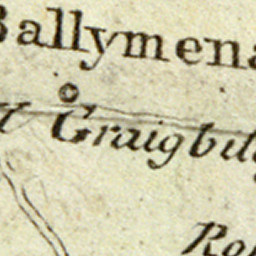 Ballymena
Graigbilly
Ro